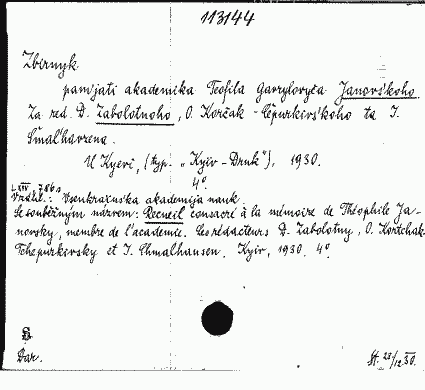 113144
Zbirnyk
pamjati akademika Teofila Gavrylovyča Janovs'koho
Za red. D. Zabolotnoho, O. Korčak-Čepurkivs'koho ta I.
Šmal'havzena.
U Kyevi, (typ. "Kyiv-Druk"), 1930.
4°.
LXIV 786 s
Vydal.: Vseukrainska akademija nauk.
Se souběžným názvem: Recueil consacré à la mémoire de Théophile Ja-
novsky, membre de l'académie. Les rédacteurs D. Zabolotny, O. Kortchak-
Tchepurkivsky et I. Chmalhausen. Kyiv, 1930. 4°.
S
Dar.
St. 23/12 30.